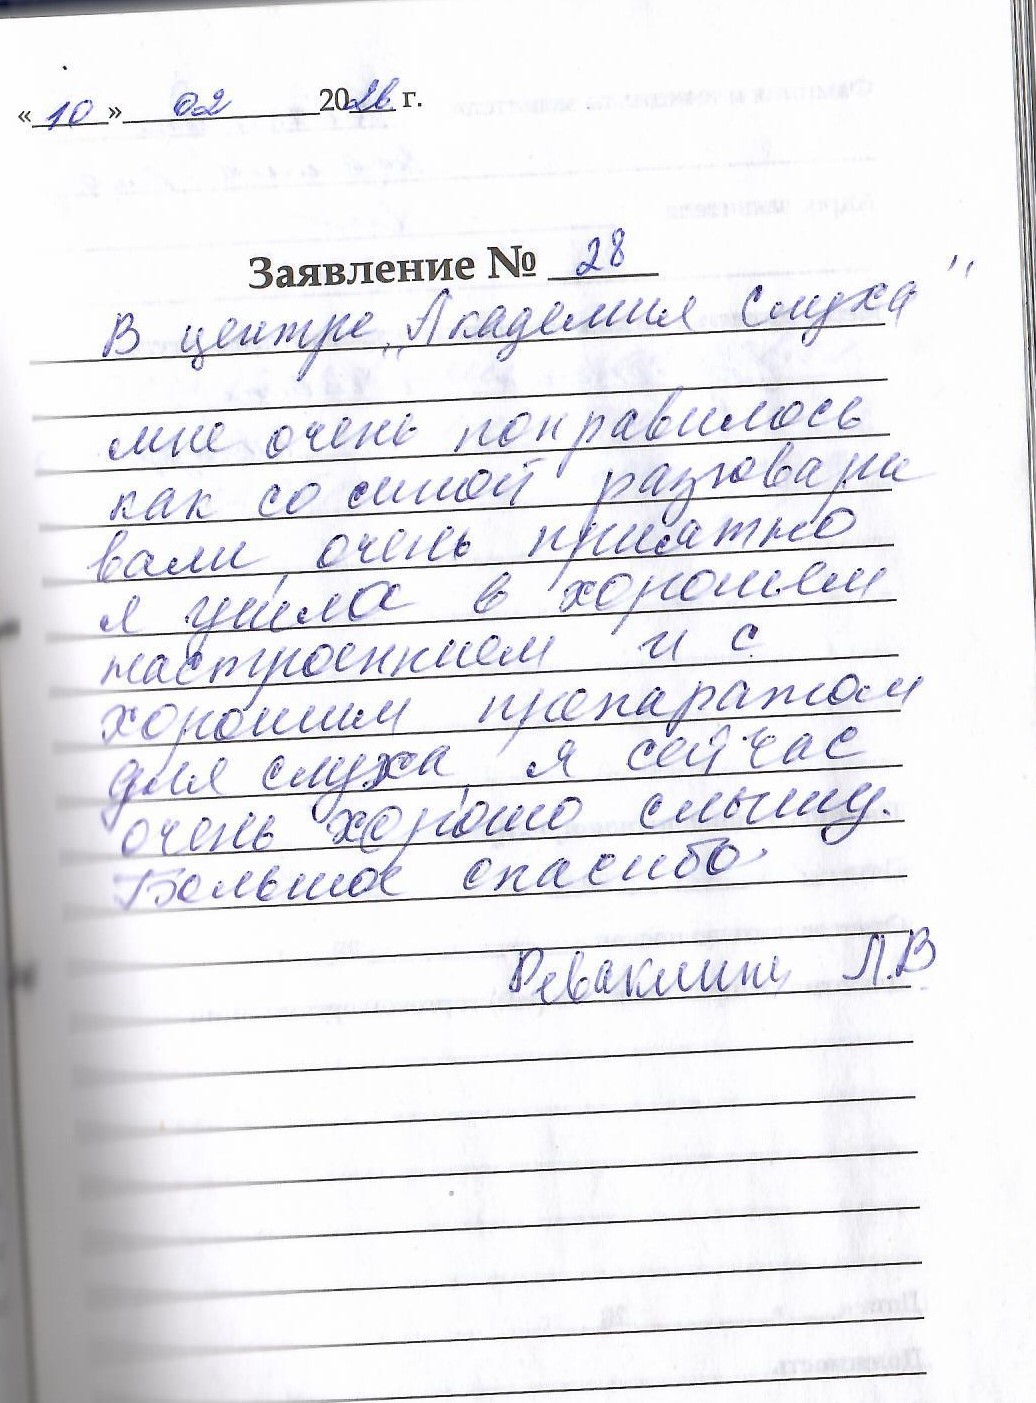 «10» 02 2026 г.
Заявление № 28
В центре „Академия Слуха"
мне очень понравилось
как со мной разговари
вали, очень приятно
я ушла в хорошем
настроеннием и с
хорошим препаратом
для слуха, я сейчас
очень хорошо слышу.
Большое спасибо
Л.В